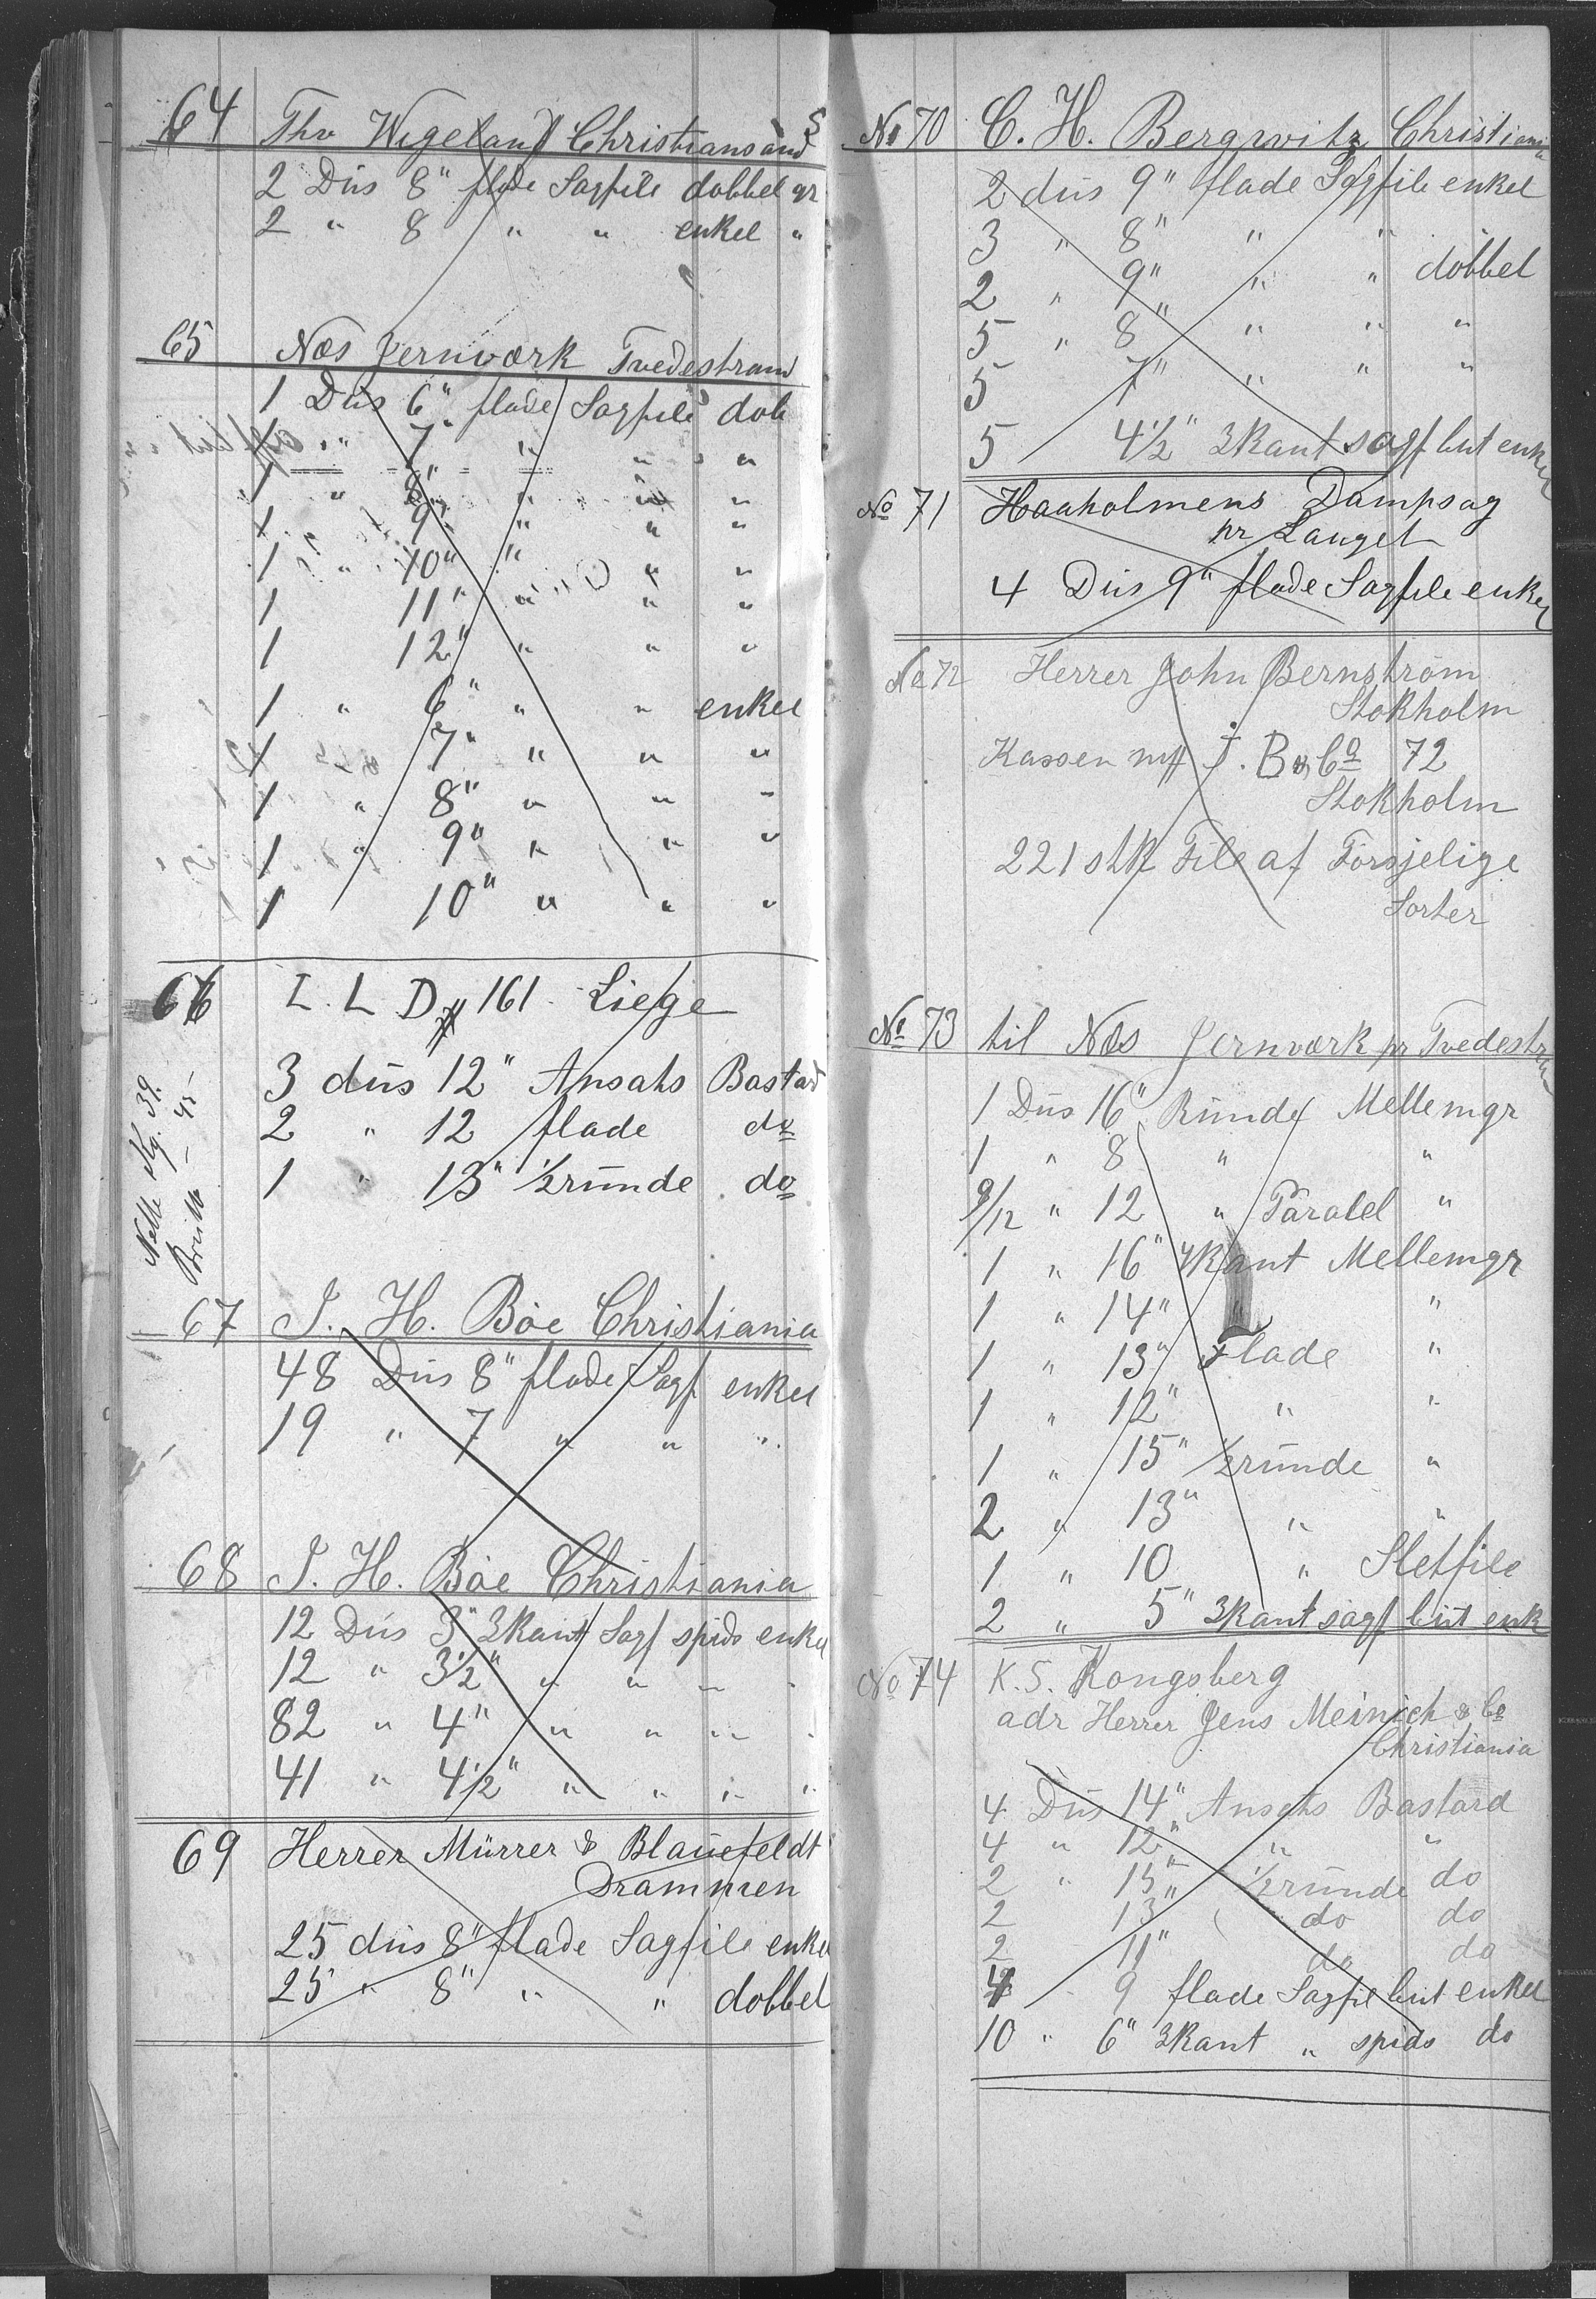 64 Thv Wigeland Christiansand S
2 Dūs 8" flade Sagfile dobbel gr
2 " 8 " " enkel "
65 Næs Jernværk Tvedestrand
1 Dūs 6" flade Sagfile dob
1 " 7" " " "
1 " 8" " " "
1 9" " " "
1 " 10" " " "
1 11" " " "
1 12" " " "
1 " 6" " " enkel
1 7" " " "
1 " 8" " " "
1 " 9" " " "
1 10" " " "
66 L. L D # 161 Liege
3 dūs 12" Ansats Bastard
2 " 12 flade do
1 " 13" ½rūnde do
Netto Kg. 39.
Brutto - 45 -
67 J. H. Böe Christiania
48 Dūs 8" flade Sagf enkel
19 " 7 " " "
68 J. H. Böe Christiania
12 Dūs 3" 3kant Sagf spids enkel
12 " 3½" " " " "
82 " 4" " " " "
41 " 4½" " " " "
69 Herrer Mūrrer & Blaūefeldt
Drammen
25 dūs 8" flade Sagfile enkel
25 " 8" " " dobbel
No 70 C. H. Bergwitz Christiania
2 dūs 9" flade Sagfile enkel
3 " 8" " "
2 " 9" " " dobbel
5 " 8" " " "
5 7" " " "
5 4½" 3kant sagf būt enkel
No 71 Haaholmens Dampsag
pr Langet
4 Dūs 9" flade Sagfile enkel
No 72 Herrer John Bernström
Stokholm
Kassen J. B & Co 72
Stokholm
221 stk File af Forsjelige
Sorter
No 73 til Næs Jernværk pr Tvedestrand
1 Dūs 16" Rūnde Mellemgr
1 " 8 " "
9/12 " 12 " Paralel "
1 " 16" 4kant Mellemgr
1 " 14" " "
1 " 13" Flade "
1 " 12" " "
1 " 15" ½rūnde "
2 " 13" " "
1 " 10 " Sletfile
2 " 5" 3kant sagf būt enk
No 74 K. S. Kongsberg
adr Herrer Jens Meinich & Co
Christiania
4 Dūs 14" Ansats Bastard
4 " 12" " "
2 " 15" ½rūnde do
2 13" do do
2 11" do do
4 " 9 flade Sagfil būt enkel
10 " 6" 3kant " spids do